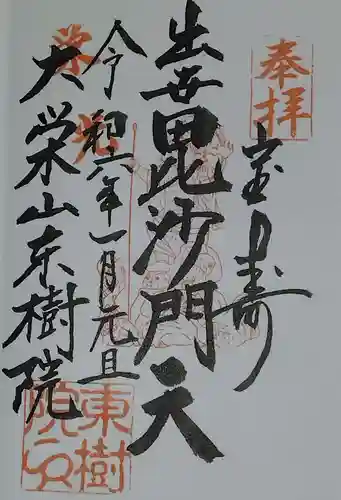 奉拝
宝寿
出世毘沙門天
令和六年一月元旦
大栄山东樹院
東樹院印